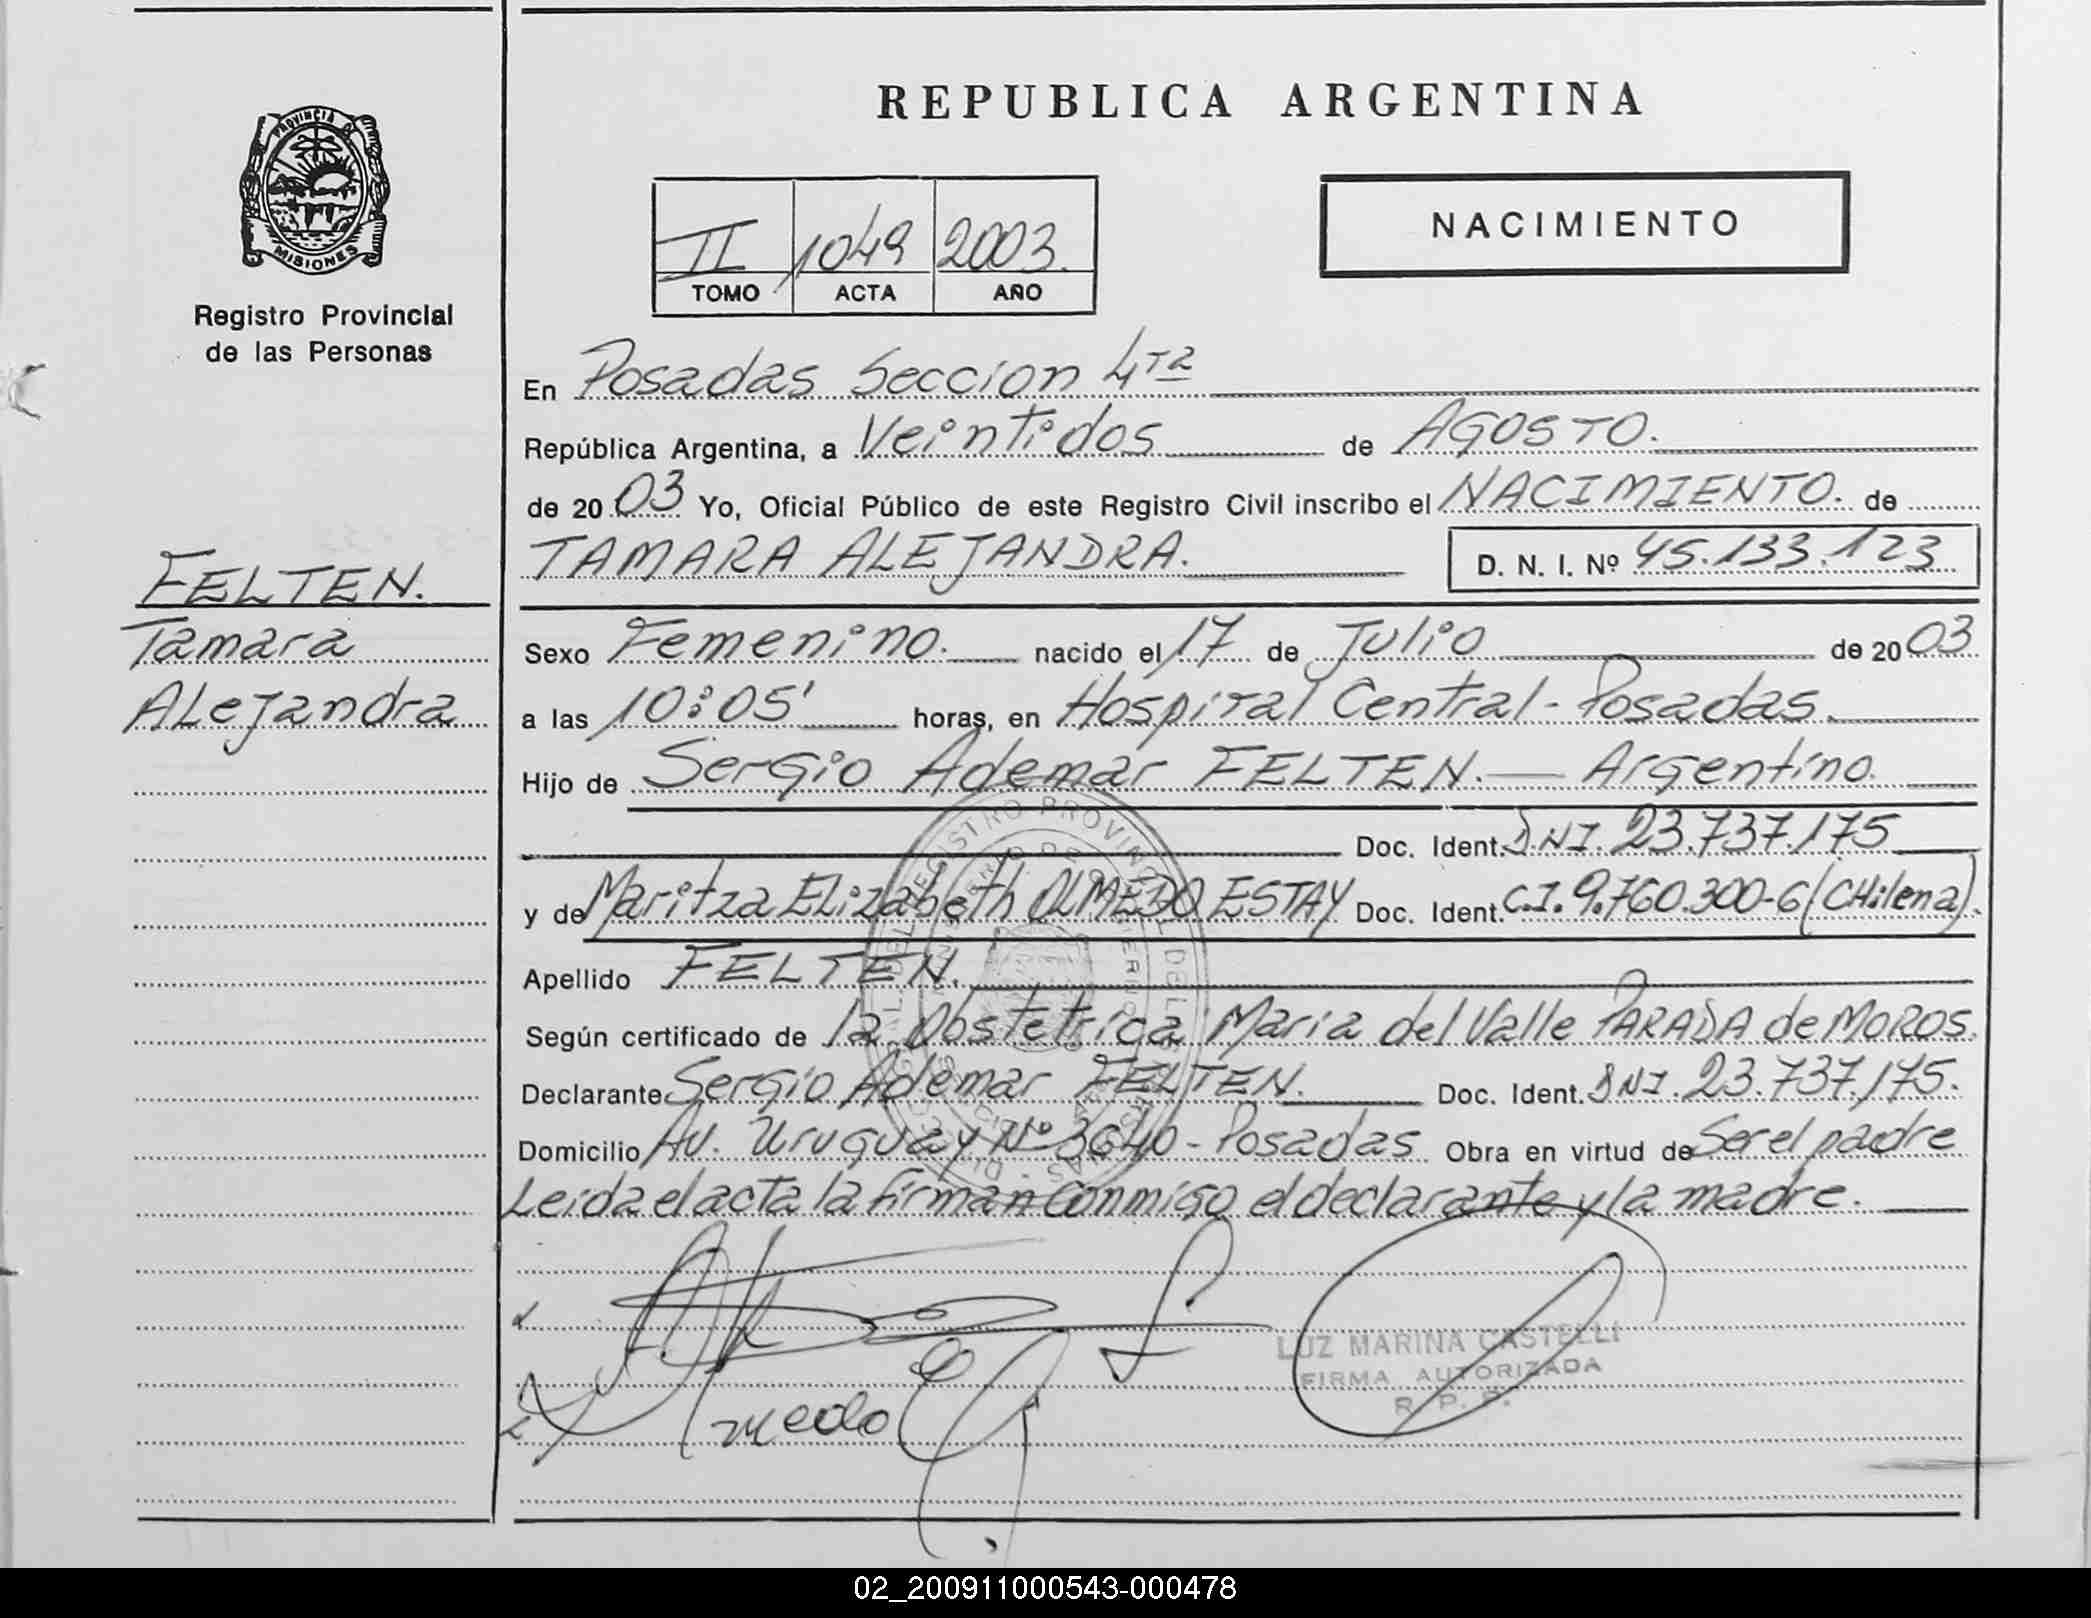 REPUBLICA ARGENTINA
PROVINCIA DE
MISIONES
Registro Provincial
de las Personas
II 1049 2003.
TOMO ACTA AÑO
NACIMIENTO
En Posadas Seccion 4ta
República Argentina, a Veintidos de AGOSTO.
de 20 03 Yo, Oficial Público de este Registro Civil inscribo el NACIMIENTO. de
TAMARA ALEJANDRA. D. N. I. Nº 45.133.123
FELTEN.
Tamara
Alejandra
Sexo Femenino. nacido el 17 de Julio de 20 03
a las 10:05' horas, en Hospital Central - Posadas.
Hijo de Sergio Ademar FELTEN. Argentino.
Doc. Ident. D.N.I. 23.737.175
y de Maritza Elizabeth OLMEDO ESTAY Doc. Ident. C.I. 9.760.300-6 (CHilena).
Apellido FELTEN.
Según certificado de la Obstetrica Maria del Valle PARADA de MOROS.
Declarante Sergio Ademar FELTEN. Doc. Ident. DNI. 23.737.175.
Domicilio Av. Uruguay Nº 3640 - Posadas Obra en virtud de Ser el padre
Leida el acta la firman conmigo el declarante y la madre.
LUZ MARINA CASTELLI
FIRMA AUTORIZADA
R. P. P.
02_200911000543-000478